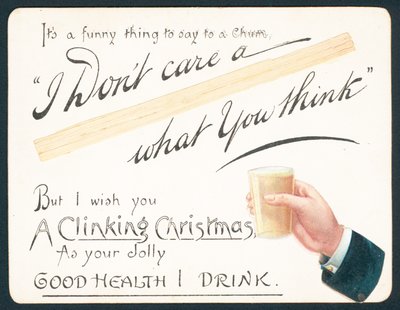 It's a funny thing to say to a Chum,
"I Don't care a
what You think"
But I wish you
A Clinking Christmas,
As your Jolly
GOOD HEALTH I DRINK.